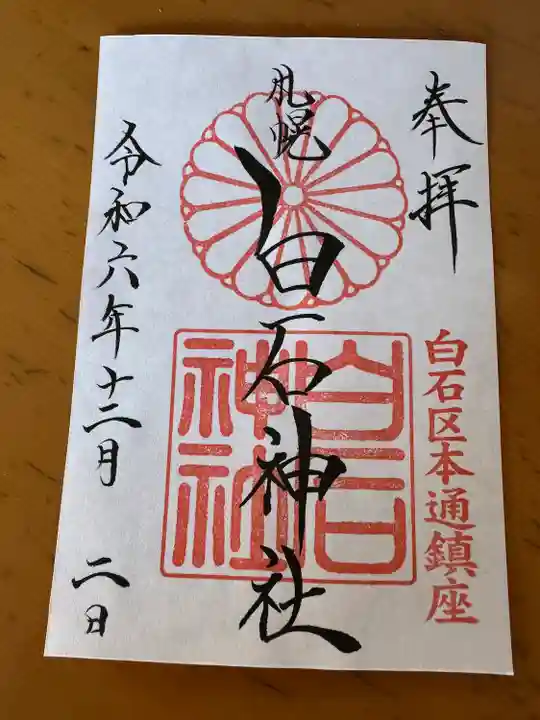 奉拝
白石区本通鎮座
札幌
白石神社
白石
神社
令和六年十二月二日